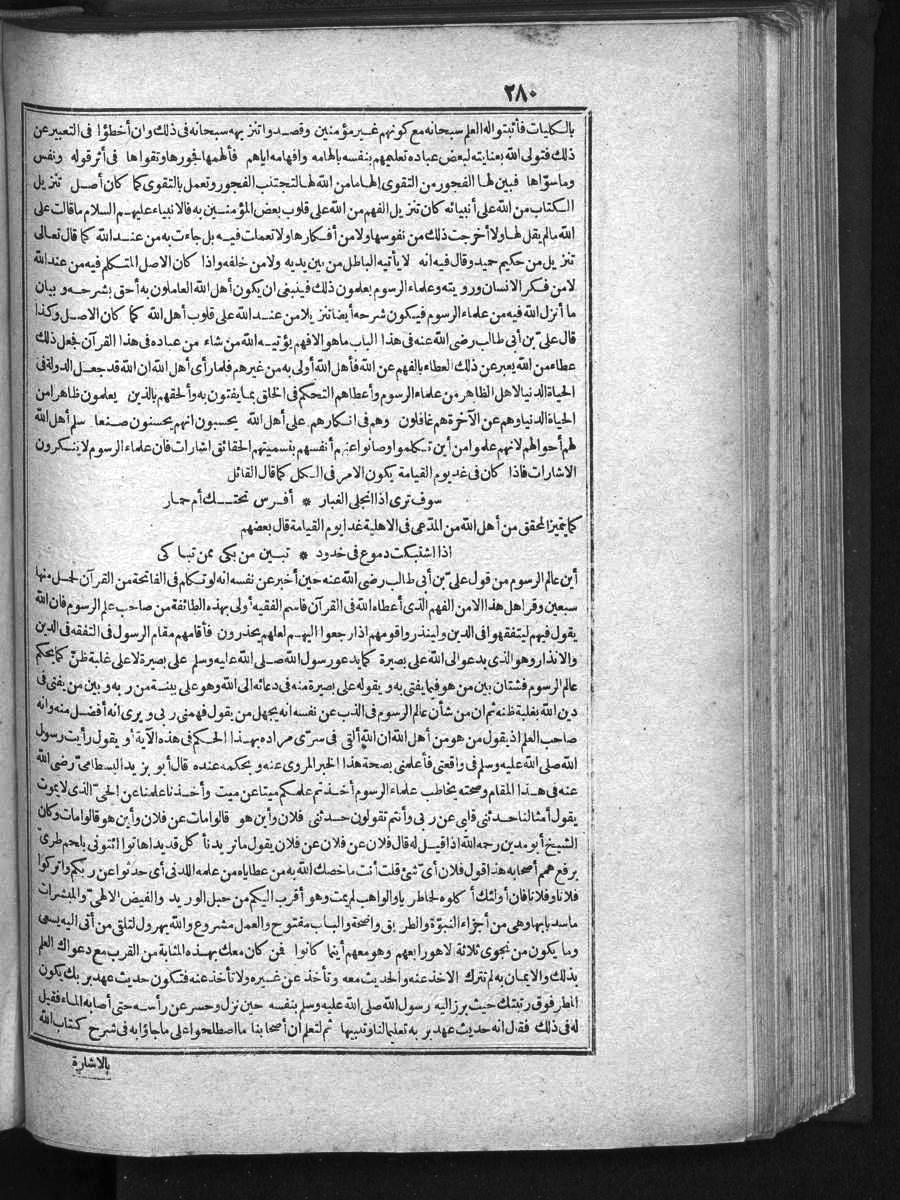 ٢٨٠
بالكليات فأثبتوا له العلم سبحانه مع كونهم غير مؤمنين وقصدوا تنزيهه سبحانه في ذلك وان أخطؤا في التعبير عن
ذلك فتولى الله بعنايته لبعض عباده تعليمهم بنفسه بالهامه وافهامه اياهم فألهمها فجورها وتقواها في أثر قوله ونفس
وما سوّاها فبين لها الفجور من التقوى الهاما من الله لها لتجتنب الفجور وتعمل بالتقوى كما كان أصل تنزيل
الكتاب من الله على أنبيائه كان تنزيل الفهم من الله على قلوب بعض المؤمنين به فالانبياء عليهم السلام ما قالت على
الله ما لم يقل لها ولا أخرجت ذلك من نفوسها ولا من أفكارها ولا تعملت فيه بل جاءت به من عند الله كما قال تعالى
تنزيل من حكيم حميد وقال فيه انه لا يأتيه الباطل من بين يديه ولا من خلفه واذا كان الاصل المتكلم فيه من عند الله
لا من فكر الانسان ورويته وعلماء الرسوم يعلمون ذلك فينبغي ان يكون أهل الله العاملون به أحق بشرحه وبيان
ما أنزل الله فيه من علماء الرسوم فيكون شرحه أيضا تنزيلا من عند الله على قلوب أهل الله كما كان الاصل وكذا
قال علىّ بن أبي طالب رضى الله عنه في هذا الباب ما هو الا فهم يؤتيه الله من شاء من عباده في هذا القرآن فجعل ذلك
عطاء من الله يعبر عن ذلك العطاء بالفهم عن الله فأهل الله أولى به من غيرهم فلما رأى أهل الله ان الله قد جعل الدولة في
الحياة الدنيا لاهل الظاهر من علماء الرسوم وأعطاهم التحكم في الخلق بما يفتون به وألحقهم بالذين يعلمون ظاهرا من
الحياة الدنيا وهم عن الآخرة هم غافلون وهم في انكارهم على أهل الله يحسبون انهم يحسنون صنعا سلم أهل الله
لهم أحوالهم لانهم علموا من أين تكلموا وصانوا عنهم أنفسهم بتسميتهم الحقائق اشارات فان علماء الرسوم لا ينكرون
الاشارات فاذا كان في غد يوم القيامة يكون الامر في الكل كما قال القائل
سوف ترى اذا انجلى الغبار * أفرس تحتك أم حمار
كما يتميز المحقق من أهل الله من المدّعى في الاهلية غدا يوم القيامة قال بعضهم
اذا اشتبكت دموع في خدود * تبين من بكى ممن تباكى
أين عالم الرسوم من قول علىّ بن أبي طالب رضى الله عنه حين أخبر عن نفسه انه لو تكلم في الفاتحة من القرآن لحمل منها
سبعين وقرا هل هذا الا من الفهم الذى أعطاه الله في القرآن فاسم الفقيه أولى بهذه الطائفة من صاحب علم الرسوم فان الله
يقول فيهم ليتفقهوا في الدين ولينذروا قومهم اذا رجعوا اليهم لعلهم يحذرون فأقامهم مقام الرسول في التفقه في الدين
والانذار وهو الذى يدعو الى الله على بصيرة كما يدعو رسول الله صلى الله عليه وسلم على بصيرة لا على غلبة ظنّ كما يحكم
عالم الرسوم فشتان بين من هو فيما يفتى به ويقوله على بصيرة منه في دعائه الى الله وهو على بينة من ربه وبين من يفتى في
دين الله بغلبة ظنه ثم ان من شأن عالم الرسوم في الذب عن نفسه انه يجهل من يقول فهمنى ربى ويرى انه أفضل منه وانه
صاحب العلم اذ يقول من هو من أهل الله ان الله ألقى في سرّى مراده بهذا الحكم في هذه الآية أو يقول رأيت رسول
الله صلى الله عليه وسلم في واقعتى فأعلمنى بصحة هذا الخبر المروى عنه وبحكمه عنده قال أبو يزيد البسطامىّ رضى الله
عنه في هذا المقام وصحته يخاطب علماء الرسوم أخذتم علمكم ميتا عن ميت وأخذنا علمنا عن الحىّ الذى لا يموت
يقول أمثالنا حدثنى قلبى عن ربى وأنتم تقولون حدثنى فلان وأين هو قالوا مات عن فلان وأين هو قالوا مات وكان
الشيخ أبو مدين رحمه الله اذا قيل له قال فلان عن فلان عن فلان يقول ما نريد نأكل قديدا هاتوا ائتونى بلحم طرىّ
يرفع همم أصحابه هذا قول فلان أىّ شئ قلت أنت ما خصك الله به من عطاياه من علمه اللدنى أى حدثوا عن ربكم واتركوا
فلانا وفلانا فان أولئك أكلوه لحما طريا والواهب لم يمت وهو أقرب اليكم من حبل الوريد والفيض الالهىّ والمبشرات
ما سد بابها وهى من أجزاء النبوّة والطريق واضحة والباب مفتوح والعمل مشروع والله يهرول لتلقى من أتى اليه يسعى
وما يكون من نجوى ثلاثة الا هو رابعهم وهو معهم أينما كانوا فمن كان معك بهذه المثابة من القرب مع دعواك العلم
بذلك والايمان به لم تترك الاخذ عنه والحديث معه وتأخذ عن غيره ولا تأخذ عنه فتكون حديث عهد بربك يكون
المطر فوق رتبتك حيث برز اليه رسول الله صلى الله عليه وسلم بنفسه حين نزل وحسر عن رأسه حتى أصابه الماء فقيل
له في ذلك فقال انه حديث عهد بربه تعليما لنا وتنبيها ثم لتعلم ان أصحابنا ما اصطلحوا على ما جاؤا به في شرح كتاب الله
بالاشارة